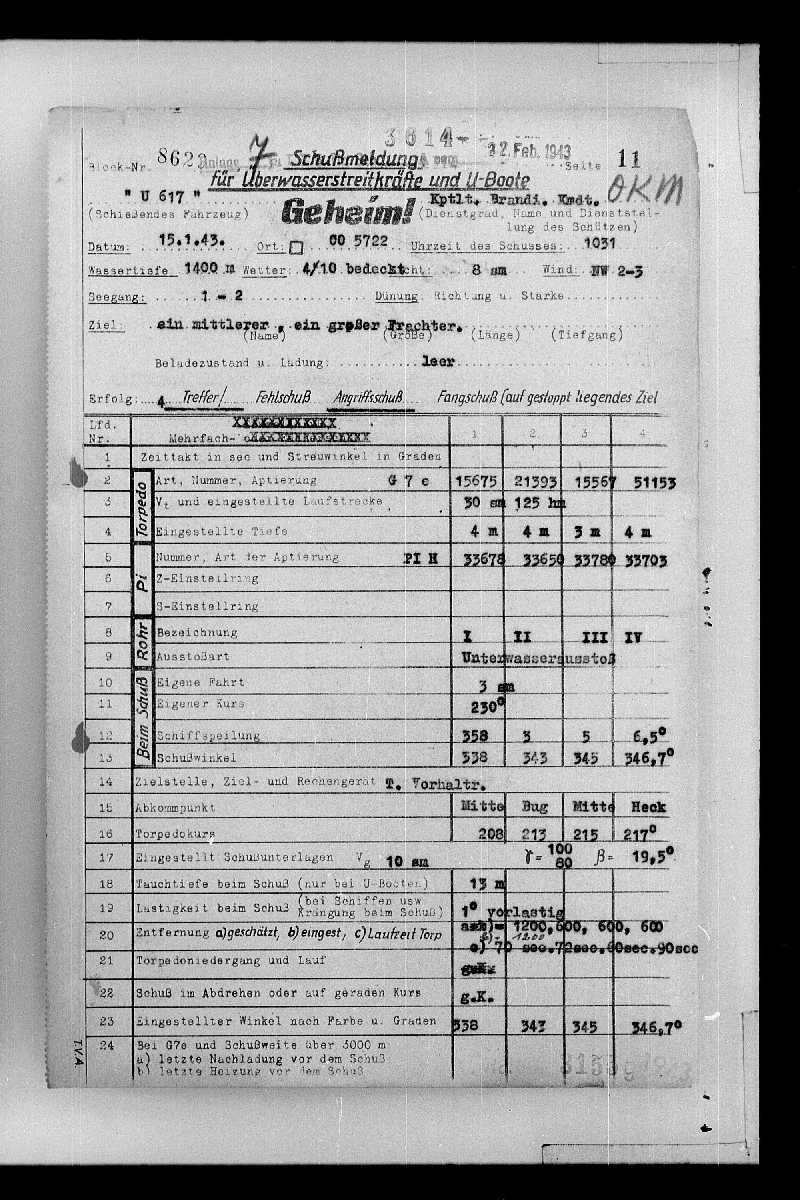 3614-
22. Feb. 1943
Block-Nr. 8623 Anlage 7 Schußmeldung Seite 11
für Überwasserstreitkräfte und U-Boote
OKM
" U 617 " Geheim! Kptlt. Brandi. Kmdt.
(Schießendes Fahrzeug) (Dienstgrad, Name und Dienststel-
lung des Schützen)
Datum: 15.1.43. Ort: CO 5722 Uhrzeit des Schusses: 1031
Wassertiefe 1400 m Wetter: 4/10 bedeckt Sicht: 8 sm Wind: NW 2-3
Seegang: 1 - 2 Dünung: Richtung u. Stärke
Ziel: ein mittlerer , ein großer Frachter.
(Name) (Größe) (Länge) (Tiefgang)
Beladezustand u. Ladung: leer
Erfolg: 4 Treffer/ Fehlschuß Angriffsschuß Fangschuß (auf gestoppt liegendes Ziel
Lfd. Nr. Mehrfach- 1 2 3 4
1 Zeittakt in sec und Streuwinkel in Graden
Torpedo
2 Art, Nummer, Aptierung G 7 e 15675 21393 15567 51153
3 Vt und eingestellte Laufstrecke 30 sm 125 hm
4 Eingestellte Tiefe 4 m 4 m 3 m 4 m
Pi
5 Nummer, Art der Aptierung PI H 33678 33650 33780 33703
6 Z-Einstellring
7 S-Einstellring
Rohr
8 Bezeichnung I II III IV
9 Ausstoßart Unterwasserausstoß
Beim Schuß
10 Eigene Fahrt 3 sm
11 Eigener Kurs 230°
12 Schiffspeilung 358 3 5 6,5°
13 Schußwinkel 338 343 345 346,7°
14 Zielstelle, Ziel- und Rechengerät T. Vorhaltr.
15 Abkommpunkt Mitte Bug Mitte Heck
16 Torpedokurs 208 213 215 217°
17 Eingestellt Schußunterlagen Vg 10 sm γ= 100 80 β= 19,5°
18 Tauchtiefe beim Schuß (nur bei U-Booten) 13 m
19 Lastigkeit beim Schuß (bei Schiffen usw Krängung beim Schuß) 1° vorlastig
20 Entfernung a) geschätzt, b) eingest., c) Laufzeit Torp 1200,600, 600, 600
b)- 1200
c) 70 sec.72sec.90sec.90sec
21 Torpedoniedergang und Lauf
22 Schuß im Abdrehen oder auf geraden Kurs g.K.
23 Eingestellter Winkel nach Farbe u. Graden 338 343 345 346,7°
24 Bei G7e und Schußweite über 3000 m
a) letzte Nachladung vor dem Schuß
b) letzte Heizung vor dem Schuß
TVA